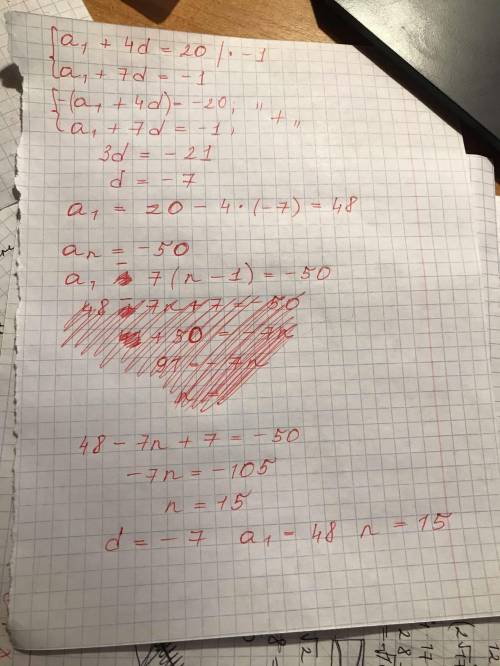 {a₁ + 4d = 20 | · -1
{a₁ + 7d = -1
{-(a₁ + 4d) = -20; "
{a₁ + 7d = -1; + "
3d = -21
d = -7
a₁ = 20 - 4 · (-7) = 48
aₙ = -50
a₁ - 7(n - 1) = -50
48 - 7n + 7 = -50
+ 50 = -7n
48 - 7n + 7 = -50
-7n = -105
n = 15
d = -7 a₁ = 48 n = 15